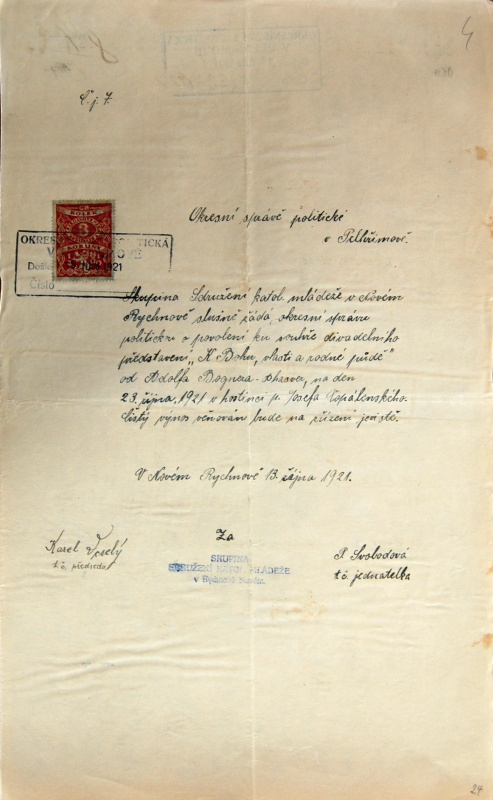 4
Č. j. 7.
Okresní správě politické
v Pelhřimově.
KOLEK
3
OKRES POLITICKÁ
V
Došlo 1921
Číslo
Skupina Sdružení katol. mládeže v Novém
Rychnově slušně žádá, okresní správu
politickou o povolení ku divadelního
představení „K Bohu, vlasti a rodné půdě"
od Adolfa Bognera na den
23. října, 1921 v hostinci p. Josefa Topálenského.
Čistý výnos věnován bude na zřízení jeviště.
V Novém Rychnově 13. října 1921.
Karel Veselý
t. č. předseda
Za
SKUPINA
SDRUŽENÍ KATOL. MLÁDEŽE
v Rychnově Novém.
P. Svobodová
t. č. jednatelka
24